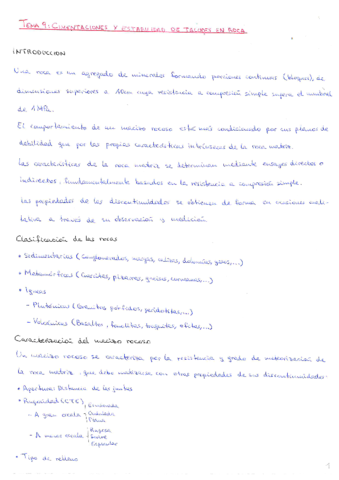 TEMA 9: CIMENTACIONES Y ESTABILIDAD DE TALUDES EN ROCA
INTRODUCCION
Una roca es un agregado de minerales formando porciones continuas (bloques), de
dimensiones superiores a 10cm cuya resistencia a compresión simple supera el umbral
de 1MPa.
El comportamiento de un macizo rocoso está más condicionado por sus planos de
debilidad que por las propias características intrínsecas de la roca matriz.
Las características de la roca matriz se determinan mediante ensayos directos o
indirectos, fundamentalmente basados en la resistencia a compresión simple.
Las propiedades de las discontinuidades se obtienen de forma en ocasiones cuali-
tativa a través de su observación y medición.
Clasificación de las rocas
• Sedimentarias (Conglomerados, margas, calizas, dolomías, yesos,...)
• Metamórficas (Cuarcitas, pizarras, gneises, corneanas,...)
• Ígneas
- Plutónicas (Granitos, pórfidos, peridotitas,...)
- Volcánicas (Basaltos, fonolitas, traquitas, ofitas,...)
Caracterización del macizo rocoso
Un macizo rocoso se caracteriza por la resistencia y grado de meteorización de
la roca matriz, que debe matizarse con otras propiedades de sus discontinuidades.
• Apertura: Distancia de las juntas
• Rugosidad (ETE)
- A gran escala Ondulada
Plana
- A menor escala Rugosa
• Tipo de relleno
1